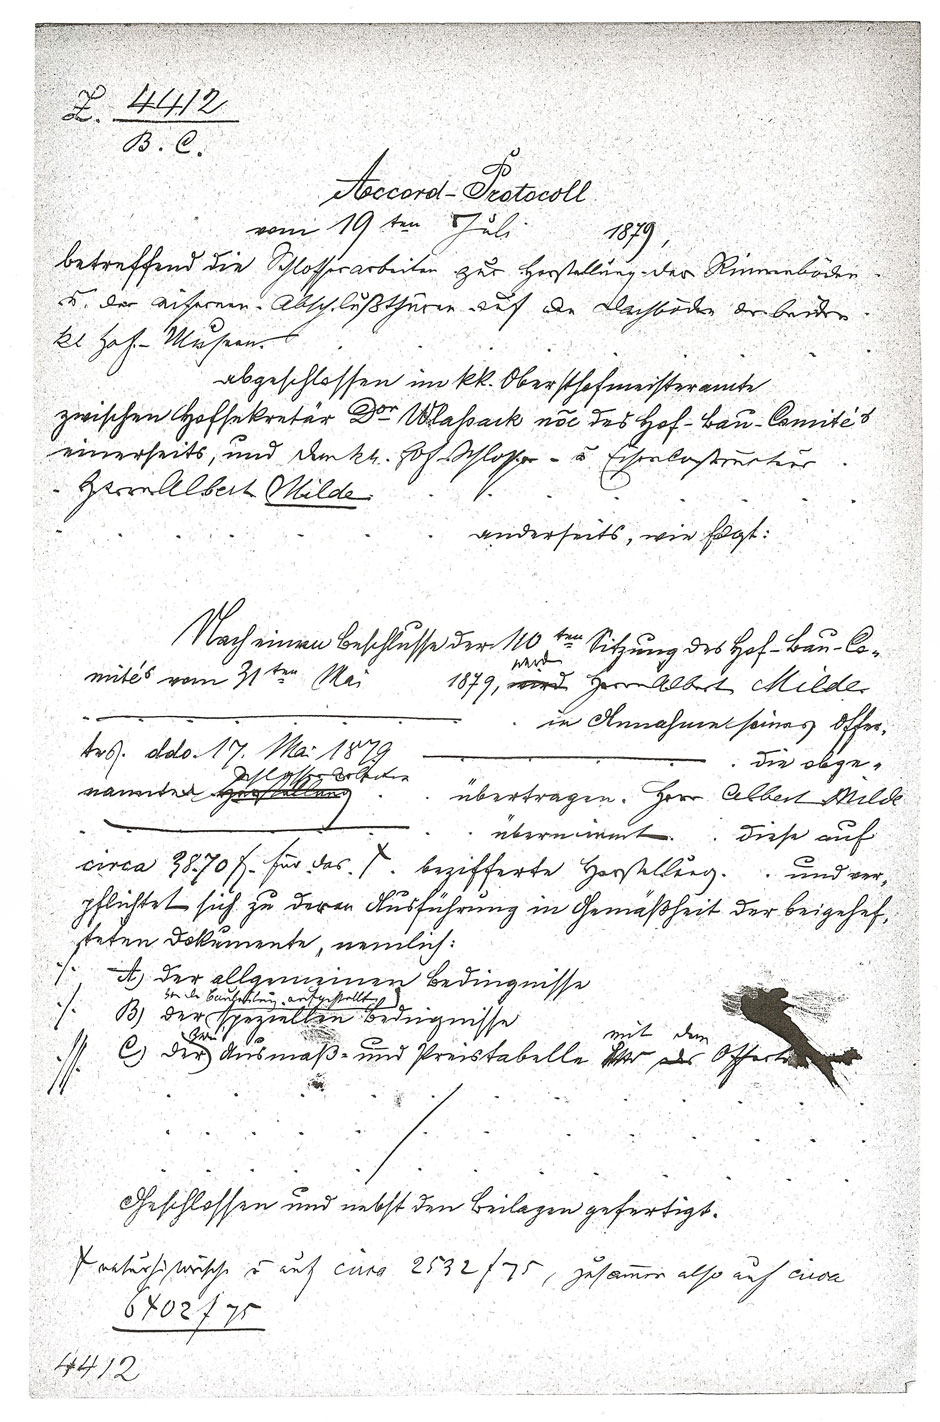 Z. 4412
B. C.
Accord-Protocoll
vom 19ten Juli 1879,
betreffend die Schlosserarbeiten zur Herstellung der Rinnenböden
u. der eisernen Abschlußthüren auf den Dachböden der beiden
kk Hof-Museen.
abgeschlossen im kk. Obersthofmeisteramte
zwischen Hofsekretär Dor Wlassack nõe des Hof-Bau-Comités
einerseits, und dem kk. Hof-Schlosser- u Eisenconstructeur
Herrn Albert Milde
anderseits, wie folgt:
Nach einem Beschlusse der 110ten Sitzung des Hof-Bau-Co-
mités vom 31ten Mai 1879, wird wird Herrn Albert Milde
in Annahme seines Offer-
tes ddo. 17. Mai 1879 die obge-
nannten Schlosserarbeiten Herstellung übertragen. Herr Albert Milde
übernimmt diese auf
circa 3870 f. für das X bezifferte Herstellung und ver-
pflichtet sich zu deren Ausführung in Gemäßheit der beigehef-
teten Dokumente, nemlich:
./. A) der allgemeinen Bedingnisse
von der Bauleitung aufgestellten
./. B) der speziellen Bedingnisse
C) der Ausmaß- und Preistabelle mit dem Offerte
Geschlossen und nebst den Beilagen gefertigt.
X naturhistorische u auf circa 2532 f 75, zusammen also auf circa
6402 f 75
4412